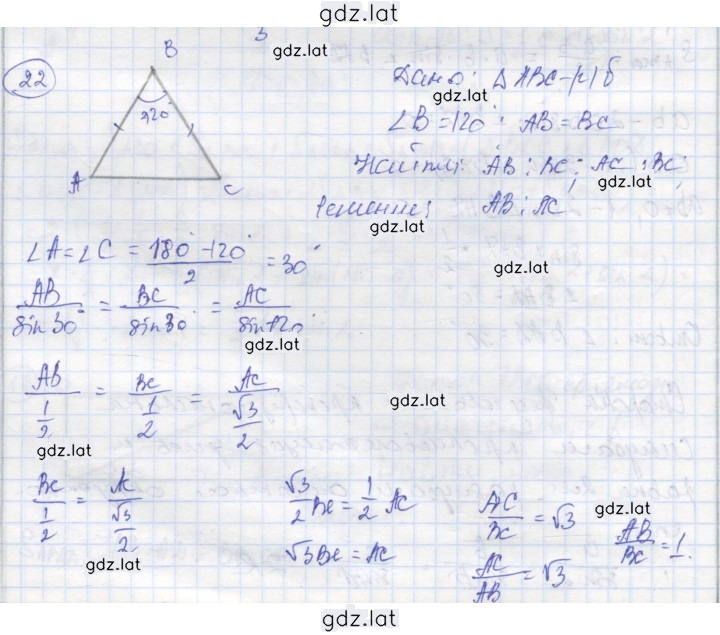 gdz.lat
22
B
120°
A
C
gdz.lat
Дано: ΔABC - р/б
gdz.lat
∠B = 120° AB = BC
Найти: AB : BC; AC : BC;
gdz.lat
Решение: AB : AC
gdz.lat
∠A = ∠C = (180° - 120°)/2 = 30°
gdz.lat
AB/sin30° = BC/sin30° = AC/sin120°
gdz.lat
AB/(1/2) = BC/(1/2) = AC/(√3/2)
gdz.lat
gdz.lat
BC/(1/2) = AC/(√3/2)
√3/2 BC = 1/2 AC
AC/BC = √3
gdz.lat
AB/BC = 1.
√3BC = AC
AC/AB = √3
gdz.lat
gdz.lat